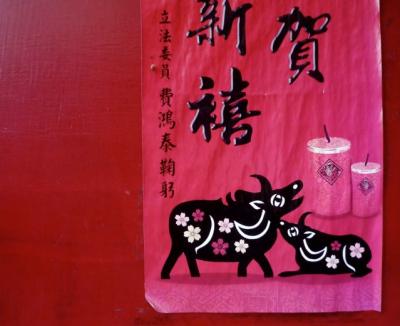 賀
新禧
立法委員 費鴻泰 鞠躬